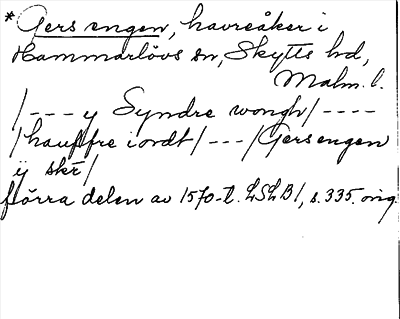 * Gers engen, havreåker i
Hammarlövs sn, Skytts hd,
Malm. l.
/--- y Syndre wongh/----
/hauffre iordt/---/Gersengen
ÿ skr/
förra delen av 1570-t. LSLB1, s. 335. orig.